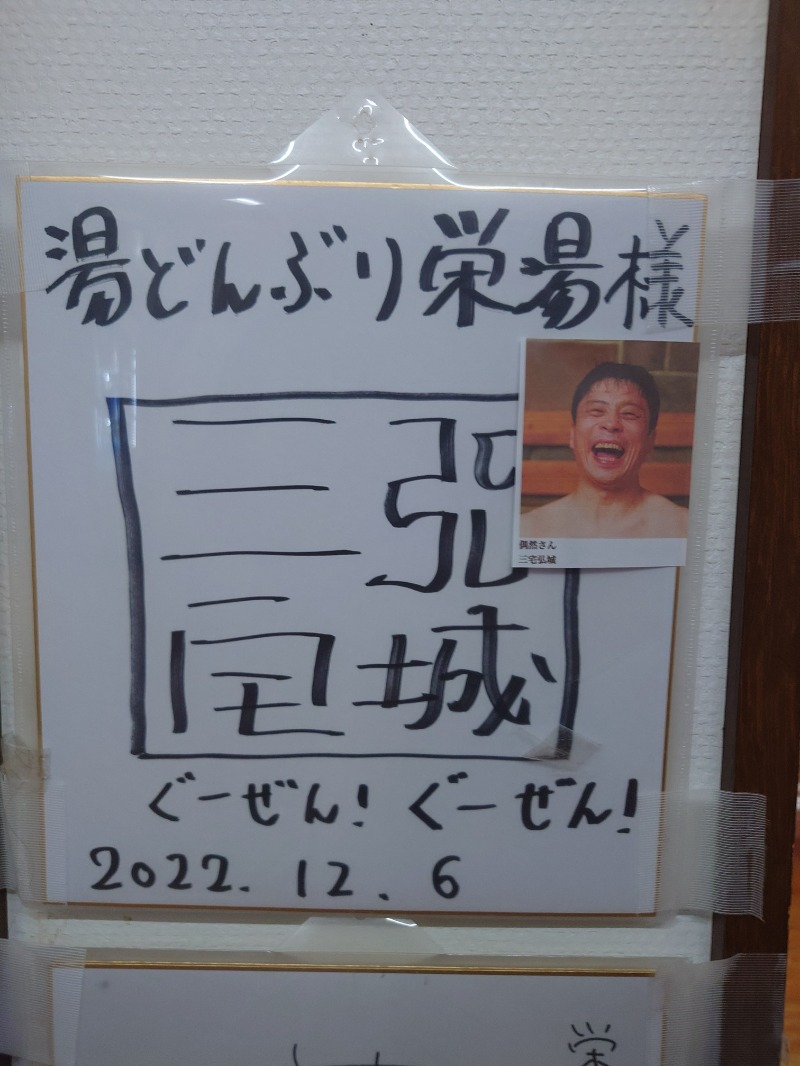 湯どんぶり栄湯様
三宅
弘城
偶然さん
三宅弘城
ぐーぜん！ぐーぜん！
2022.12.6
栄